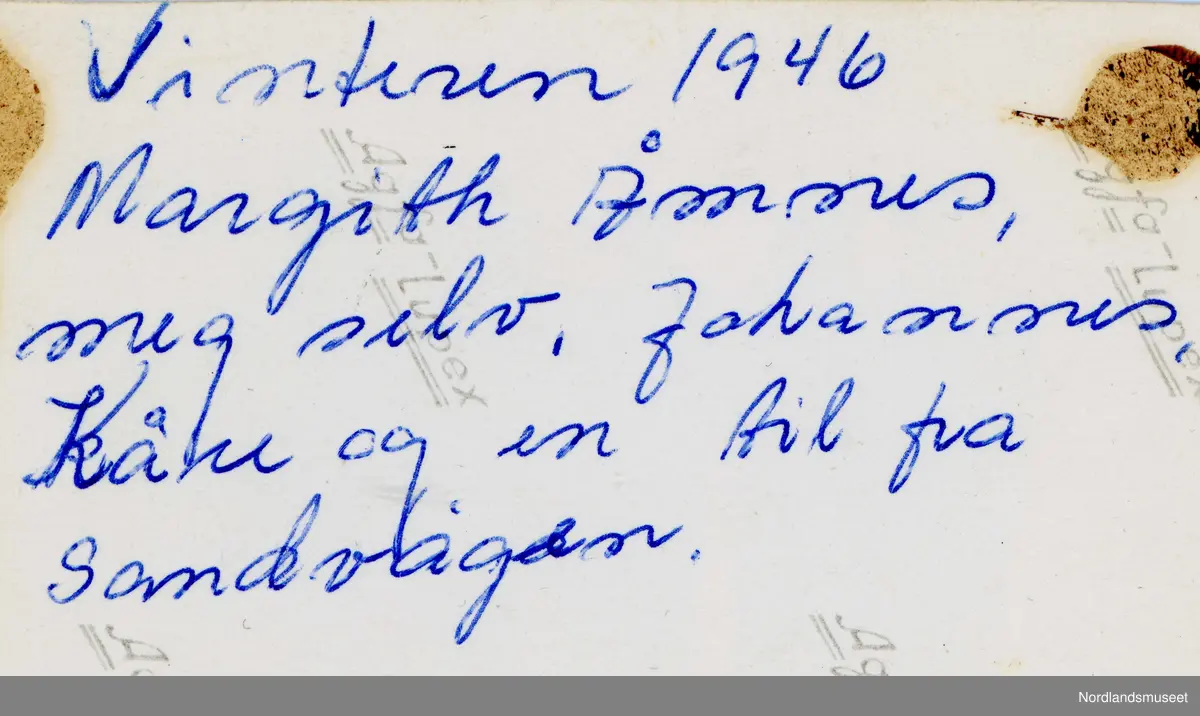 Vinteren 1946
Margith Åmnes,
meg selv, Johannes,
Kåre og en til fra
Sandvågen.
Agfa-Lupex
Agfa-Lupex
Ag
Ag
Nordlandsmuseet